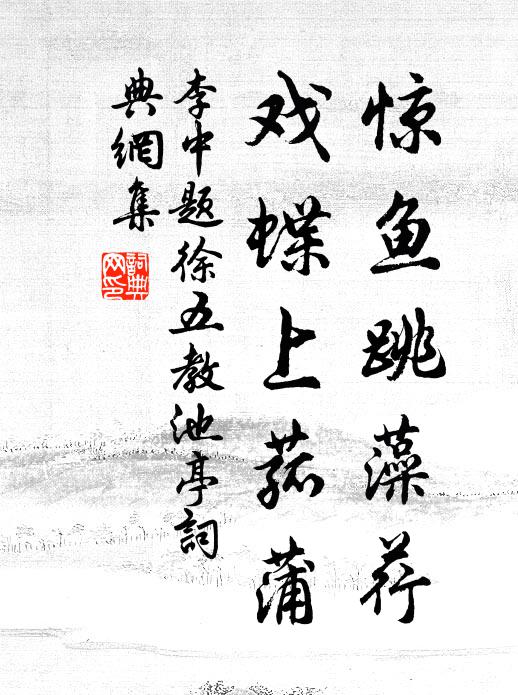 惊鱼跳藻荇
戏蝶上菰蒲
李中题徐五教池亭詞
典網集
詞典
网印